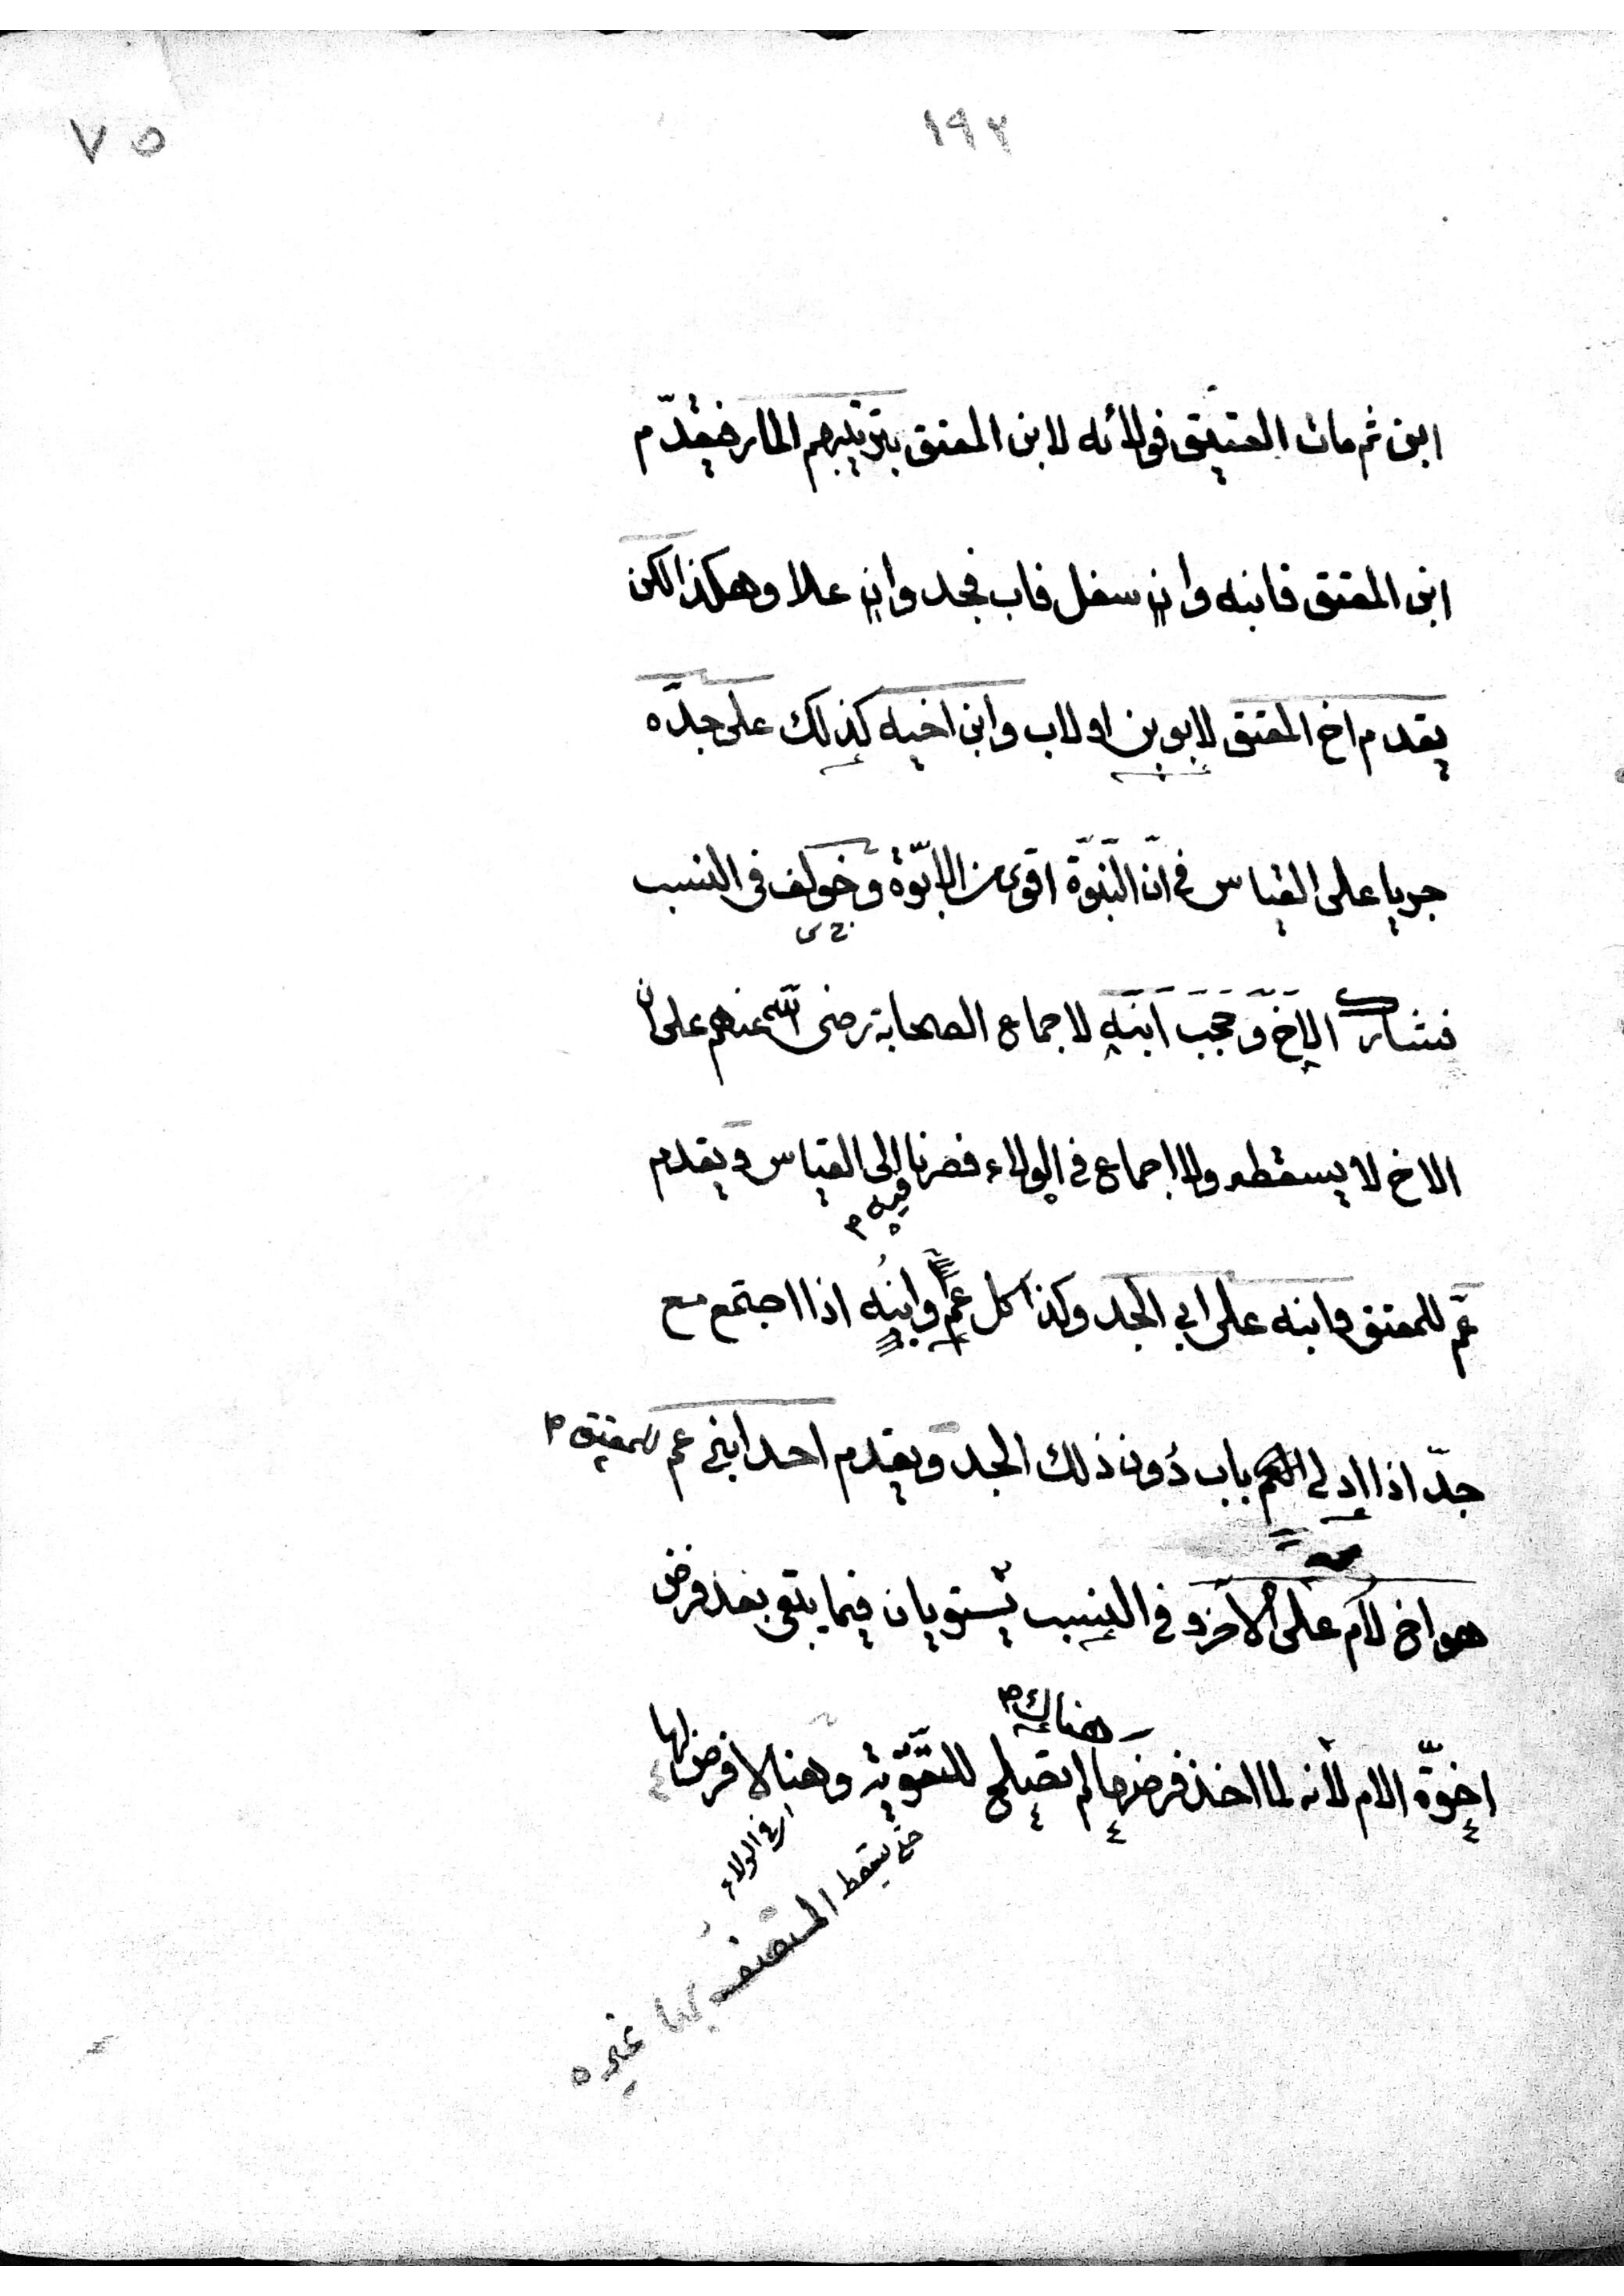 ١٩٢
٧٥
ابن ثم مات العتيق فولائه لابن المعتق بترتيبهم المار فيقدّم
ابن المعتق فابنه وان سفل فاب فجد وان علا وهكذا لكن
يقدم اخ المعتق لابوين او لاب وابن اخيه كذلك على جدّه
جريا على القياس في انّ البنوّة اقوى من الابوّة وخولف في النسب
فشارك الاخ وحجب ابنه لاجماع الصحابة رضى الله عنهم على ان
الاخ لا يسقطه ولا اجماع في الولاء فصرنا الى القياس ويقدم
فيه م
عمّ للمعتق وابنه على ابي الجد وكذا كل عمّ وابنه اذا اجتمع مع
جدّ اذا ادلى العم باب دون ذلك الجد ويقدم احد ابني عم للمعتق م
هو اخ لام على الاخر و في النسب يستويان فيما يبقى بعد فرض
هناك م
اخوّة الام لانه لما اخذ فرضها لم تصلح للتقوية وهنا لا فرض لها
اي في الولاء
حتى يسقط
غيره